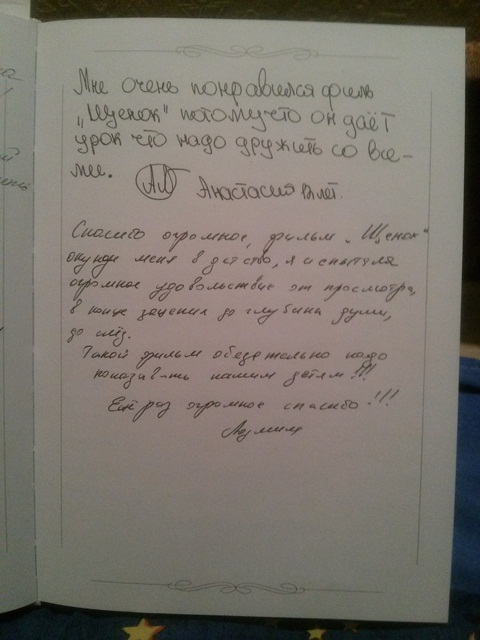 Мне очень понравился филь
„Щенок" потому что он даёт
урок что надо дружить со все-
ми.
Анастасия лет.
Спасибо огромное, фильм „Щенок"
меня в детство, я испытала
огромное удовольствие от просмотра,
в конце до глубины души,
до слёз.
Такой фильм обезательно надо
показывать нашим детям!!!
Ещё раз огромное спасибо!!!